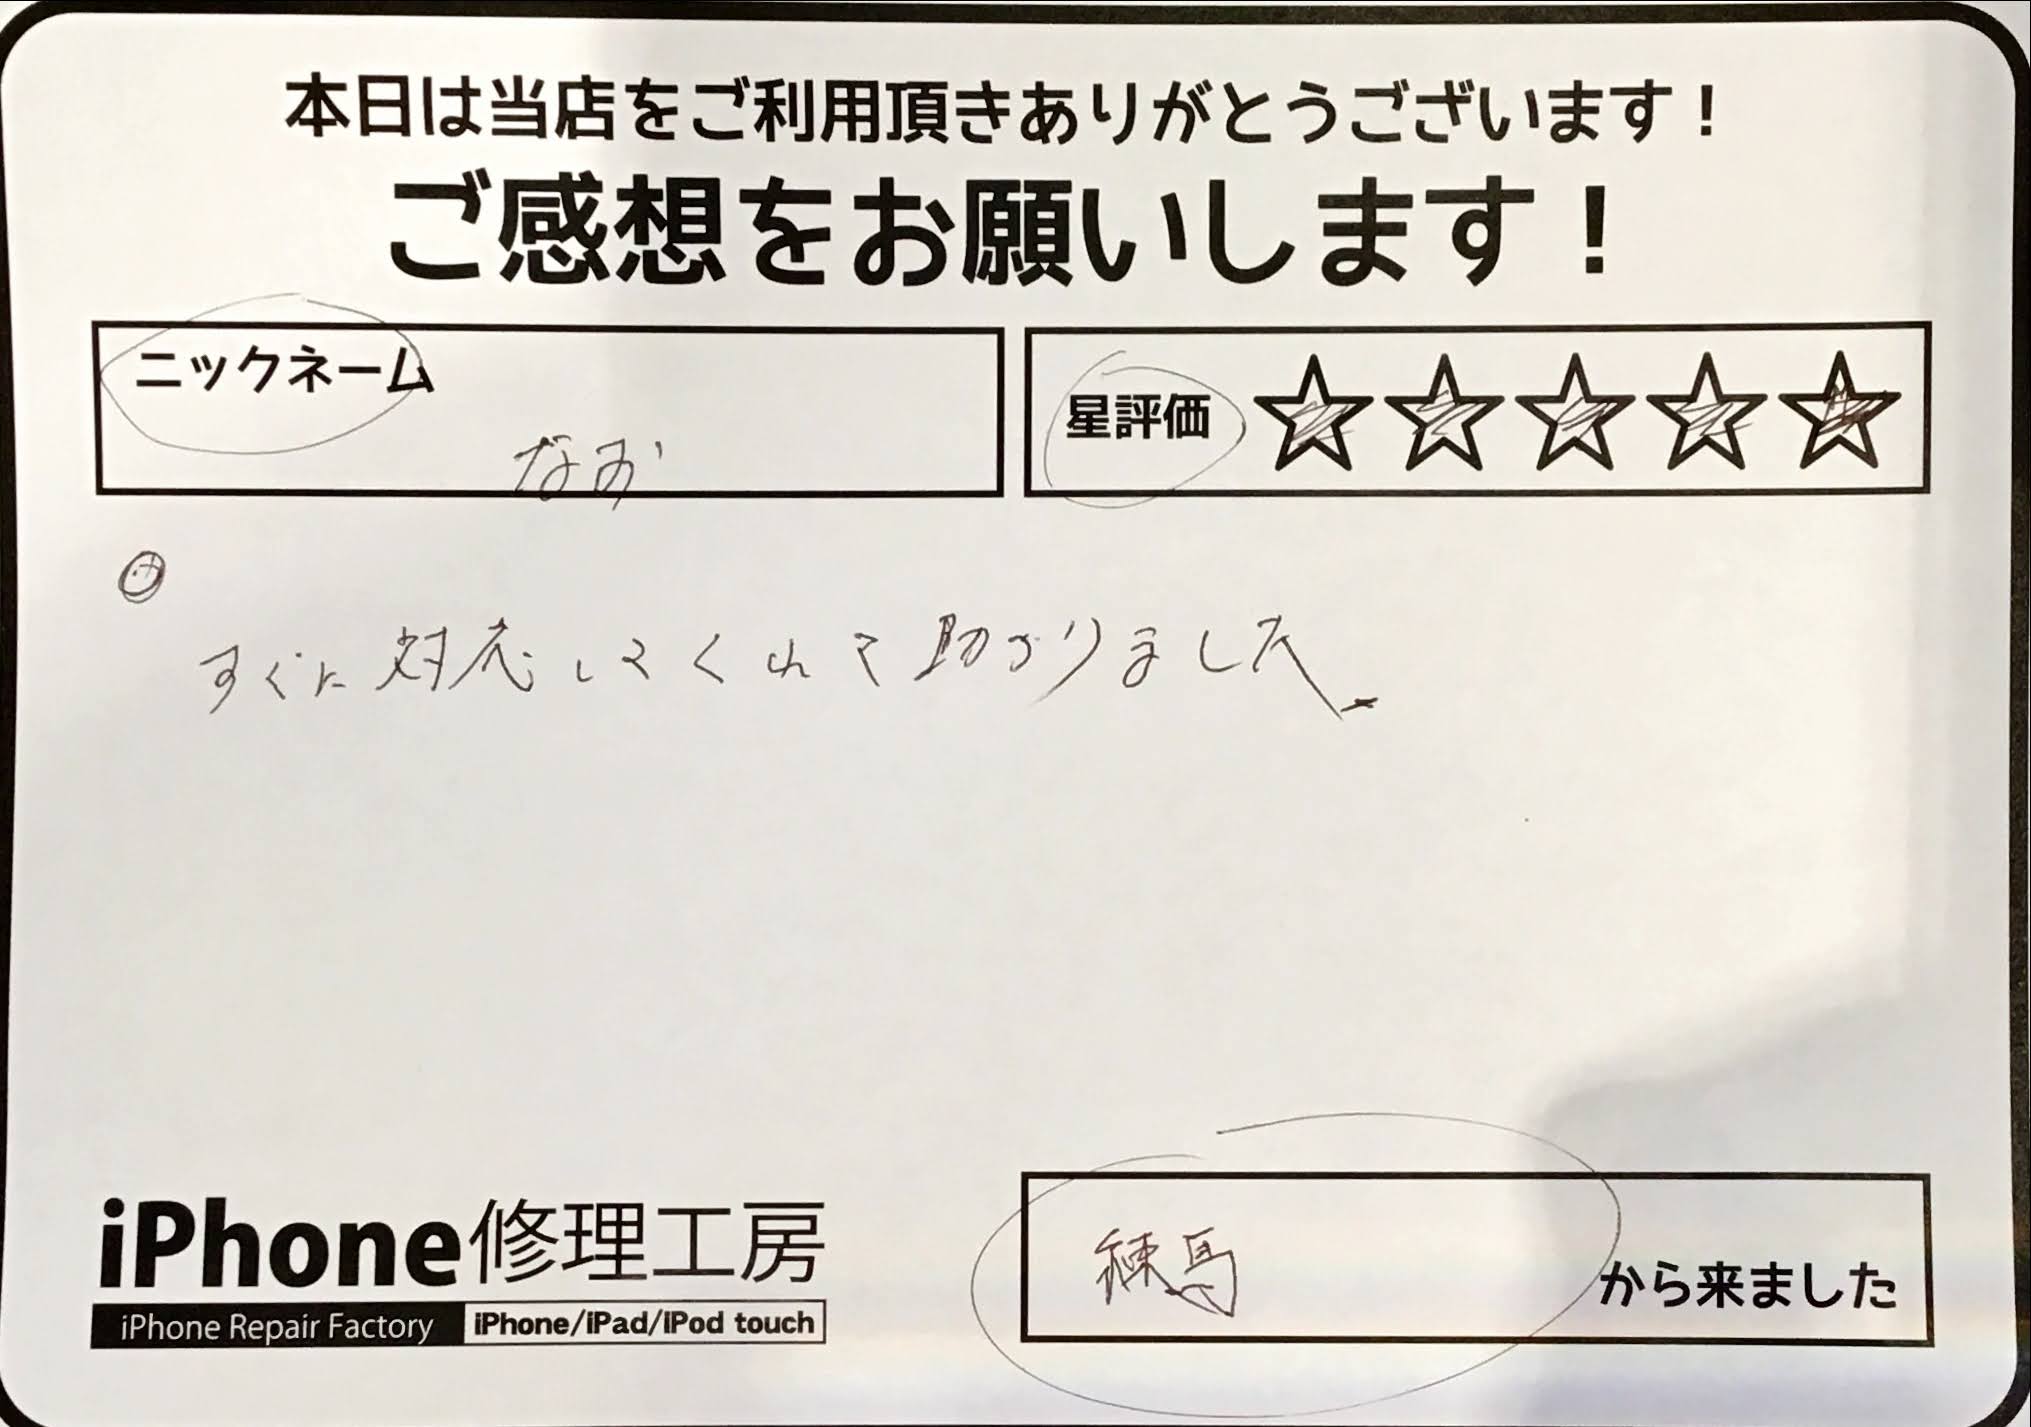 本日は当店をご利用頂きありがとうございます！
ご感想をお願いします！
ニックネーム
なお
星評価 ☆☆☆☆☆
すぐに対応してくれて助かりました
練馬 から来ました
iPhone修理工房
iPhone Repair Factory iPhone/iPad/iPod touch